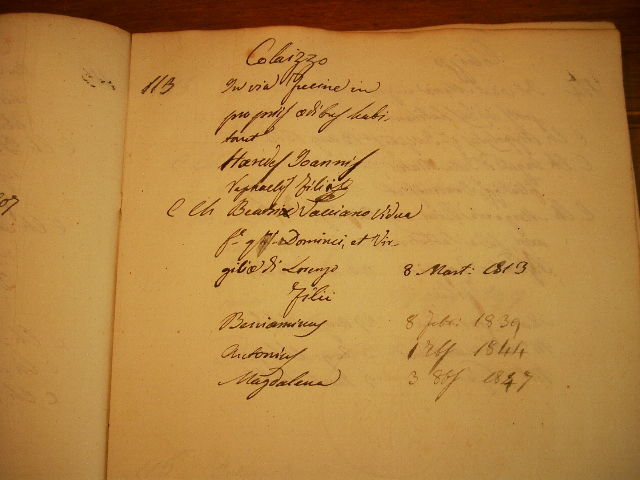 Colaizzo
113 In via Piscine in
propriis ædibus habi-
tant
Hæredes Joannis
Raphaelis Filii
C Ch Beatrix Vacciano vidua
Dominici, et Vir-
giliæ di Lorenzo 8 Mart: 1813
Filii
Beniaminus 8 Febr: 1839
Antonius 1844
Magdalena 3 1847